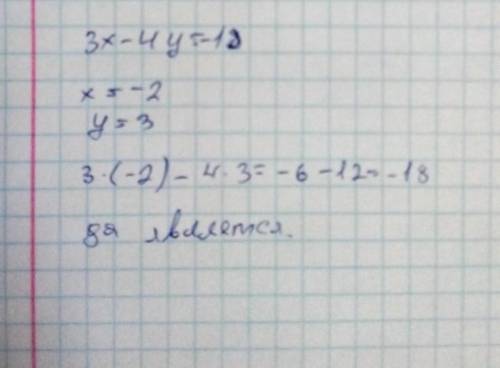 3x - 4y = -18
x = -2
y = 3
3·(-2) - 4·3 = -6 - 12 = -18
да является.